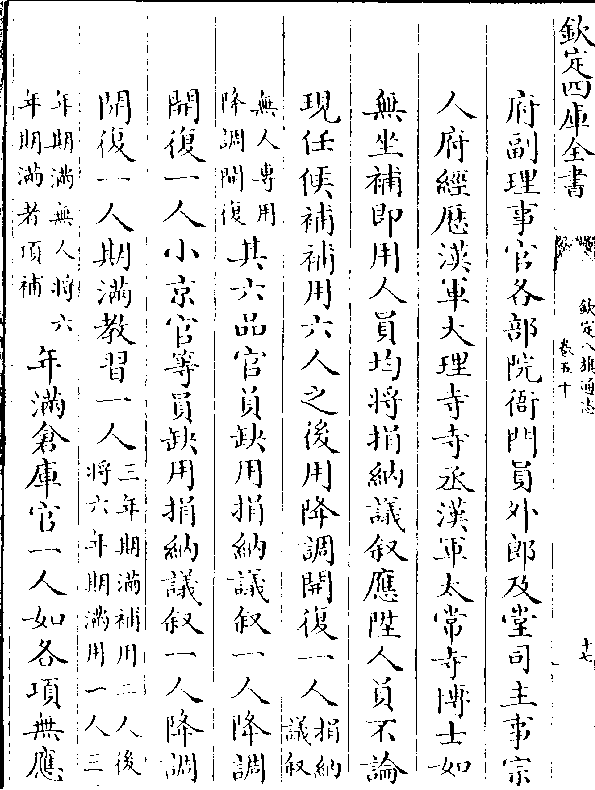 欽定四庫全書
欽定八旗通志
卷五十
十七
府副理事官各部院衙門員外郎及堂司主事宗
人府經歴漢軍大理寺寺丞漢軍太常寺博士如
無坐補即用人員均將捐納議叙應陞人員不論
現任候補補用六人之後用降調開復一人捐納
議叙
無人專用
降調開復其六品官員缺用捐納議叙一人降調
開復一人小京官等員缺用捐納議叙一人降調
開復一人期滿教習一人三年期滿補用二人後
將六年期滿用一人三
年期滿無人將六
年期滿者項補年滿倉庫官一人如各項無應